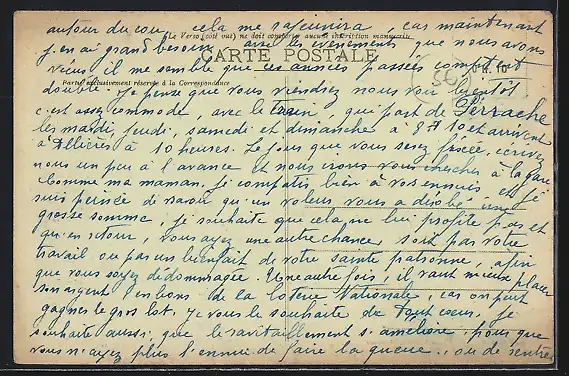 autour du cou, cela me rajeunira, car maintenant
(Le Verso (côté vue) ne doit comporter aucune inscription manuscrite)
j'en ai grand besoin, avec les évènements que nous avons
CARTE POSTALE
vécus, il me semble que ces années passées comptent
Partie exclusivement réservée à la Correspondance
double. Je pense que vous viendrez nous voir bientôt
c'est assez commode avec le train, qui part de Perrache
les mardi, jeudi, samedi et dimanche à 8 H 10 et arrivent
à 10 heures. Le jour que vous serez fixée, écrivez
nous un peu à l'avance et nous irons vous chercher à la gare
Comme ma maman, je compatis bien à vos ennuis, et je
suis peinée de savoir qu'un voleur vous a dérobé une
grosse somme, je souhaite que cela ne lui profite pas et
qu'en retour, vous ayez une autre chance, soit par votre
travail ou par un bienfait de votre sainte patronne, afin
que vous soyez dédommagée. Une autre fois, il vaut mieux placer
son argent en bons de la Loterie Nationale, car on peut
gagner le gros lot. Je vous le souhaite de tout cœur, je
souhaite aussi que le ravitaillement s'améliore, pour que
vous n'ayez plus l'ennui de faire la queue, ou de rentrer